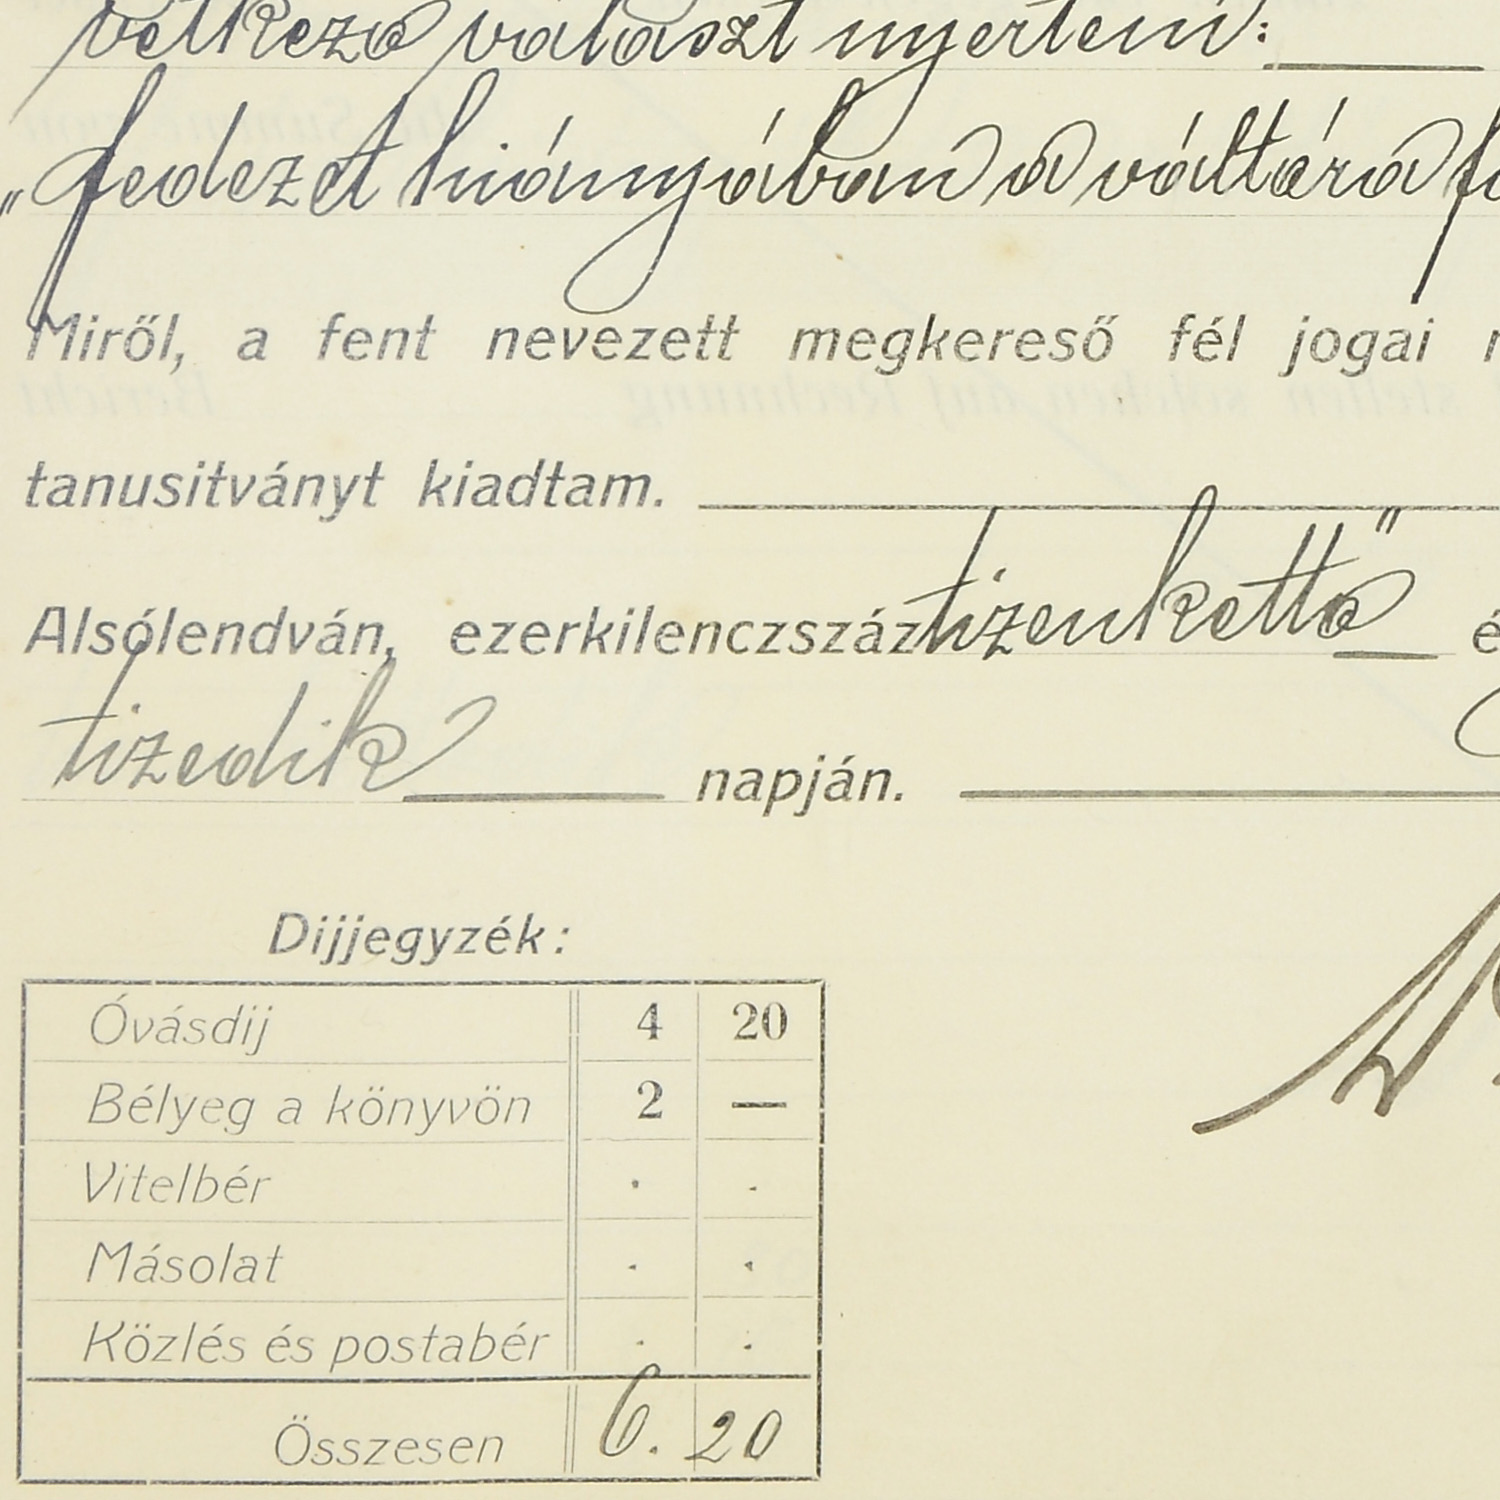 vetkező választ nyertem:
„fedezet hiányában a váltóra
Miről, a fent nevezett megkereső fél jogai
tanusitványt kiadtam.
Alsólendván, ezerkilenczszáztizenkettő
tizedik napján.
Dijjegyzék:
Óvásdij 4 20
Bélyeg a könyvön 2 —
Vitelbér . .
Másolat . .
Közlés és postabér . .
Összesen 6. 20